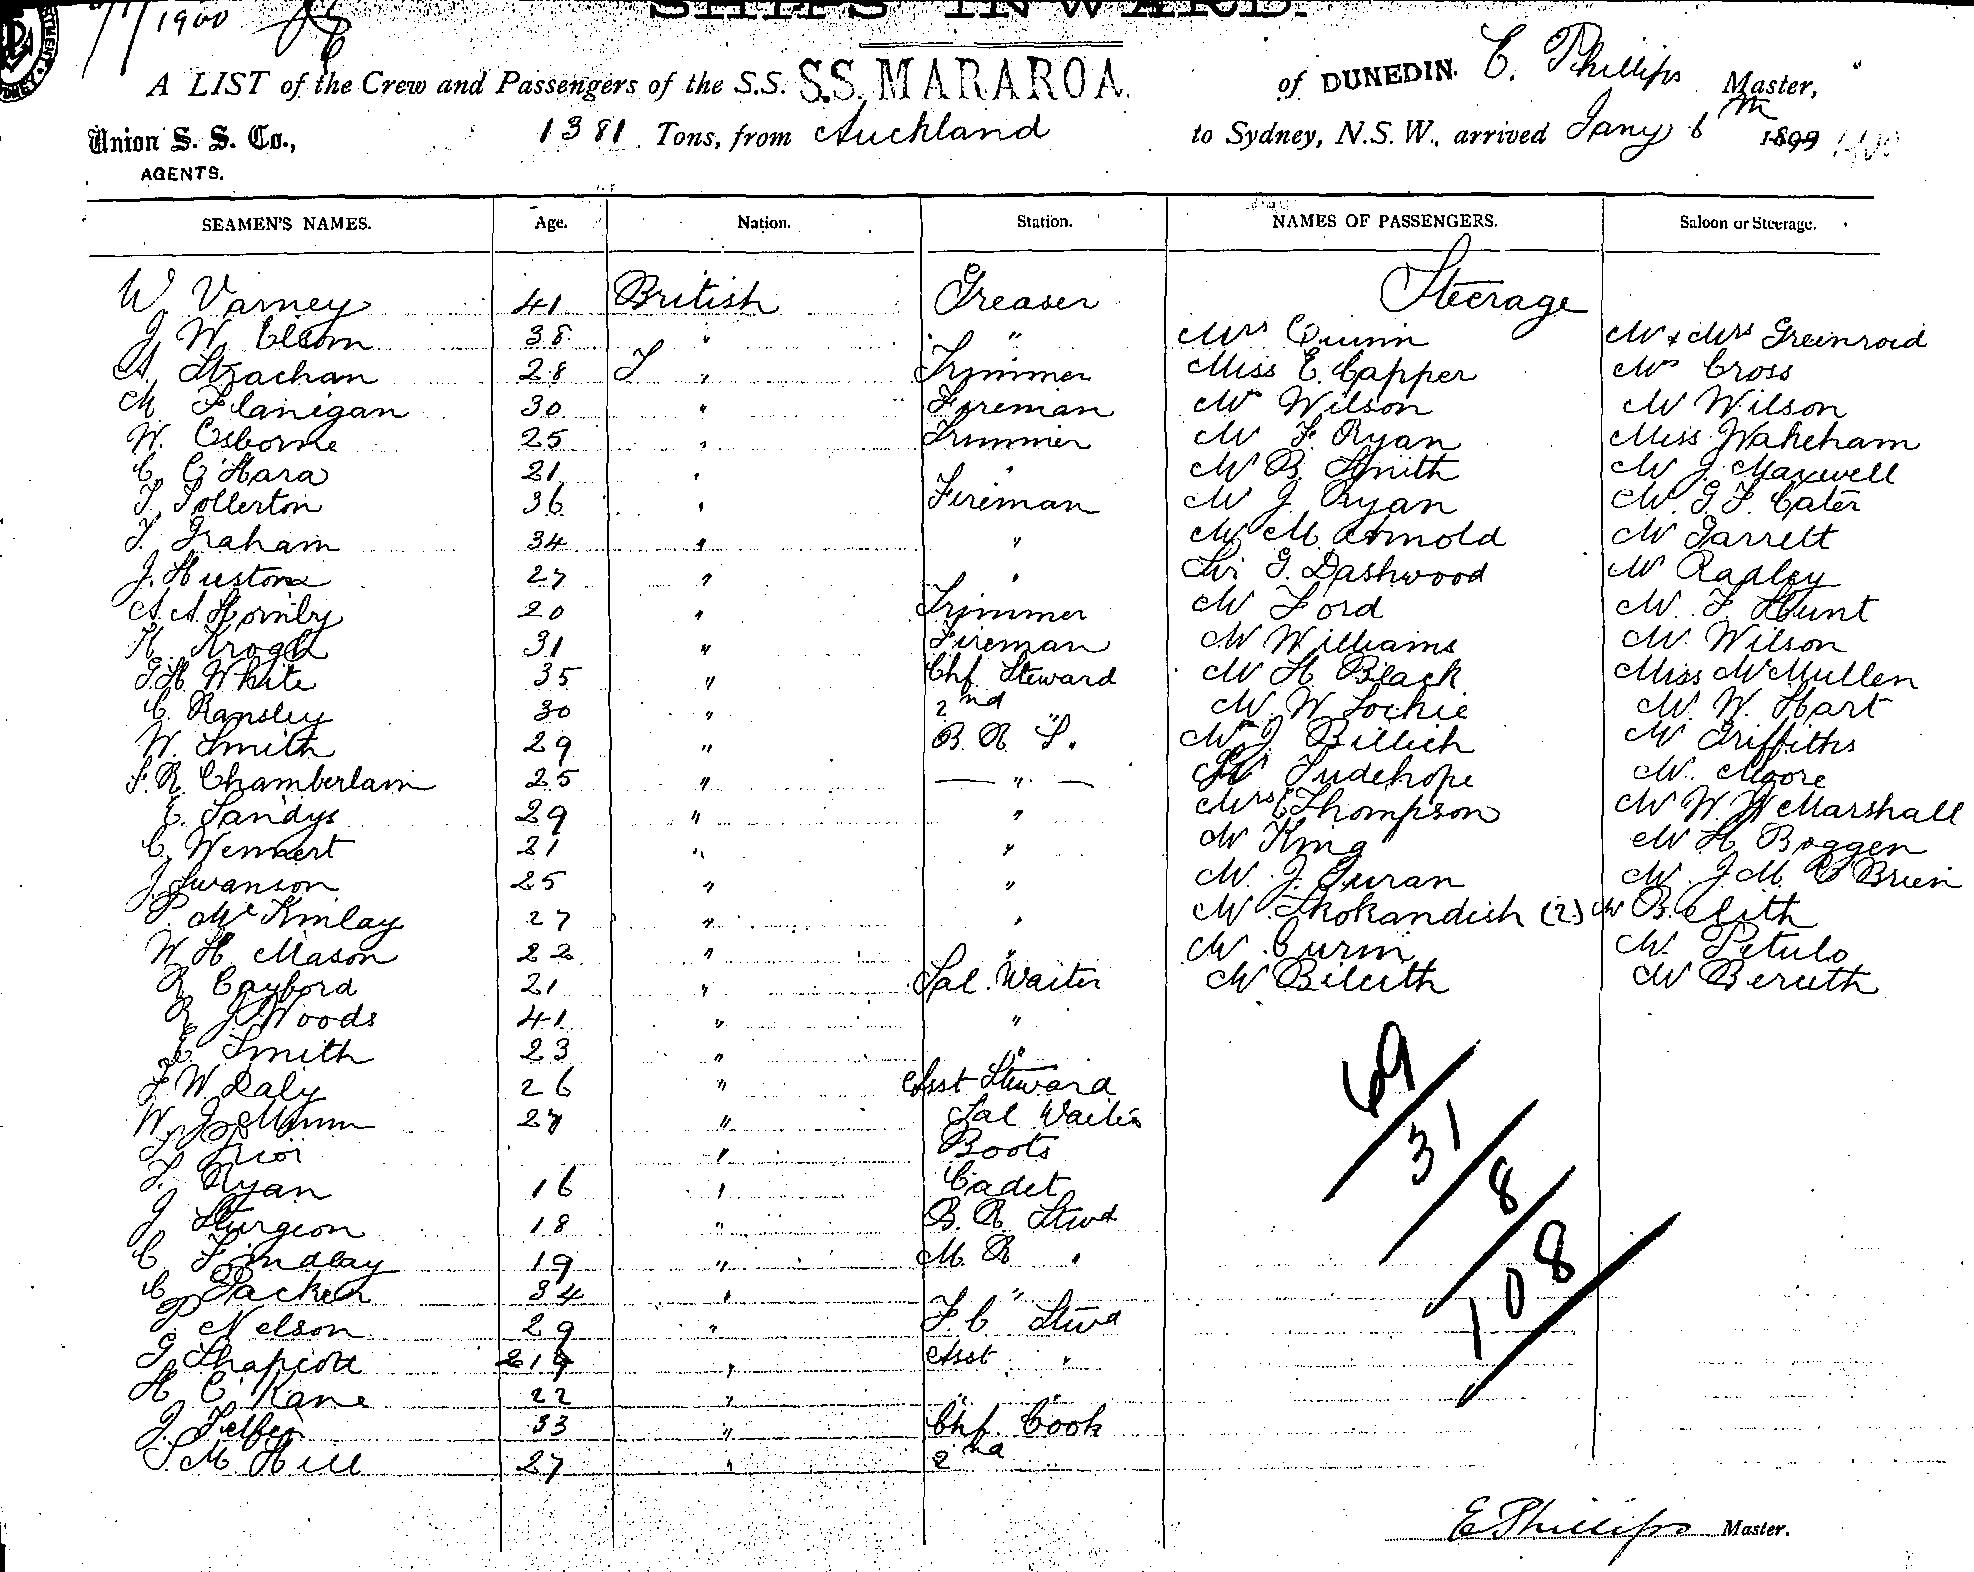 1900
SHIPS INWARD.
A LIST of the Crew and Passengers of the S.S. S.S. MARAROA. of DUNEDIN. C. Phillips Master,
Union S. S. Co., 1381 Tons, from Auckland to Sydney, N.S.W., arrived Jany 6th 1899 1900
AGENTS.
SEAMEN'S NAMES. Age. Nation. Station. NAMES OF PASSENGERS. Saloon or Steerage.
W Varney 41 British Greaser Steerage
J W 38 " " Mrs Quinn Mr & Mrs Greenroid
A Strachan 28 " Trimmer Miss E. Capper Mrs Cross
M Flanigan 30 " Fireman Mr Wilson Mr Wilson
W. Osborne 25 " Trimmer Mr F Ryan Miss Wakeham
C. O'Hara 21 " " Mr B. Smith Mr J. Maxwell
T. Tollerton 36 " Fireman Mr J. Ryan Mr G F Cater
T. Graham 34 " " Mr M Arnold Mr Jarrett
J. Huston 27 " " Sir G. Dashwood Mr Radley
A. A. Hornby 20 " Trimmer Mr Ford Mr F Hunt
H Krogh 31 " Fireman Mr Williams Mr Wilson
G. H. White 35 " Chf. Steward Mr H Black Miss McMullen
C. Ransley 30 " 2nd " Mr W Lockie Mr W. Hart
W. Smith 29 " B. R. S. Mr J. Billich Mr Griffiths
F. R. Chamberlain 25 " — " — Mr Tudehope Mr Moore
E. Sandys 29 " " Mrs Thompson Mr W. W Marshall
C. Wennert 21 " " Mr King Mr H Boggen
J. Swanson 25 " " Mr J. Curan Mr J M O'Brien
P. McKinlay 27 " " Mr Skokandich (2) Mr Belith
W H Mason 22 " " Mr Curin Mr Petulo
R Cayford 21 " Sal. Waiter Mr Bileith Mr Beruth
R J. Woods 41 " "
E Smith 23 " "
F W Daly 26 " Asst Steward
W. J. 27 " Sal Waiter
Prior " Boots
T. Ryan 16 " Cadet
J Sturgeon 18 " B. R. Stwd
C Findlay 19 " M. R "
C Packer 34 " "
P Nelson 29 " F. C. Stwd
G. Shapcott 21 " Asst "
H C Kane 22 " " "
J. Telfer 33 " Chf. Cook
S. M Hill 27 " 2nd "
69
31
8
108
E Phillips Master.